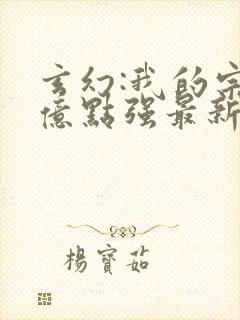 玄幻:我的宗
億點强最新
楊寶茹